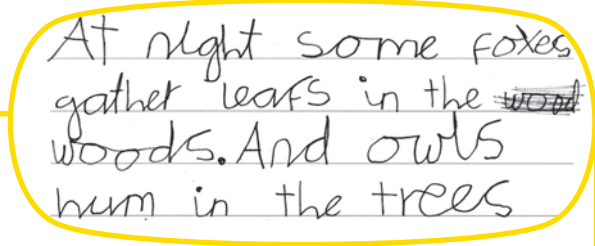 At night some foxes
gather leafs in the wood
woods. And owls
hum in the trees